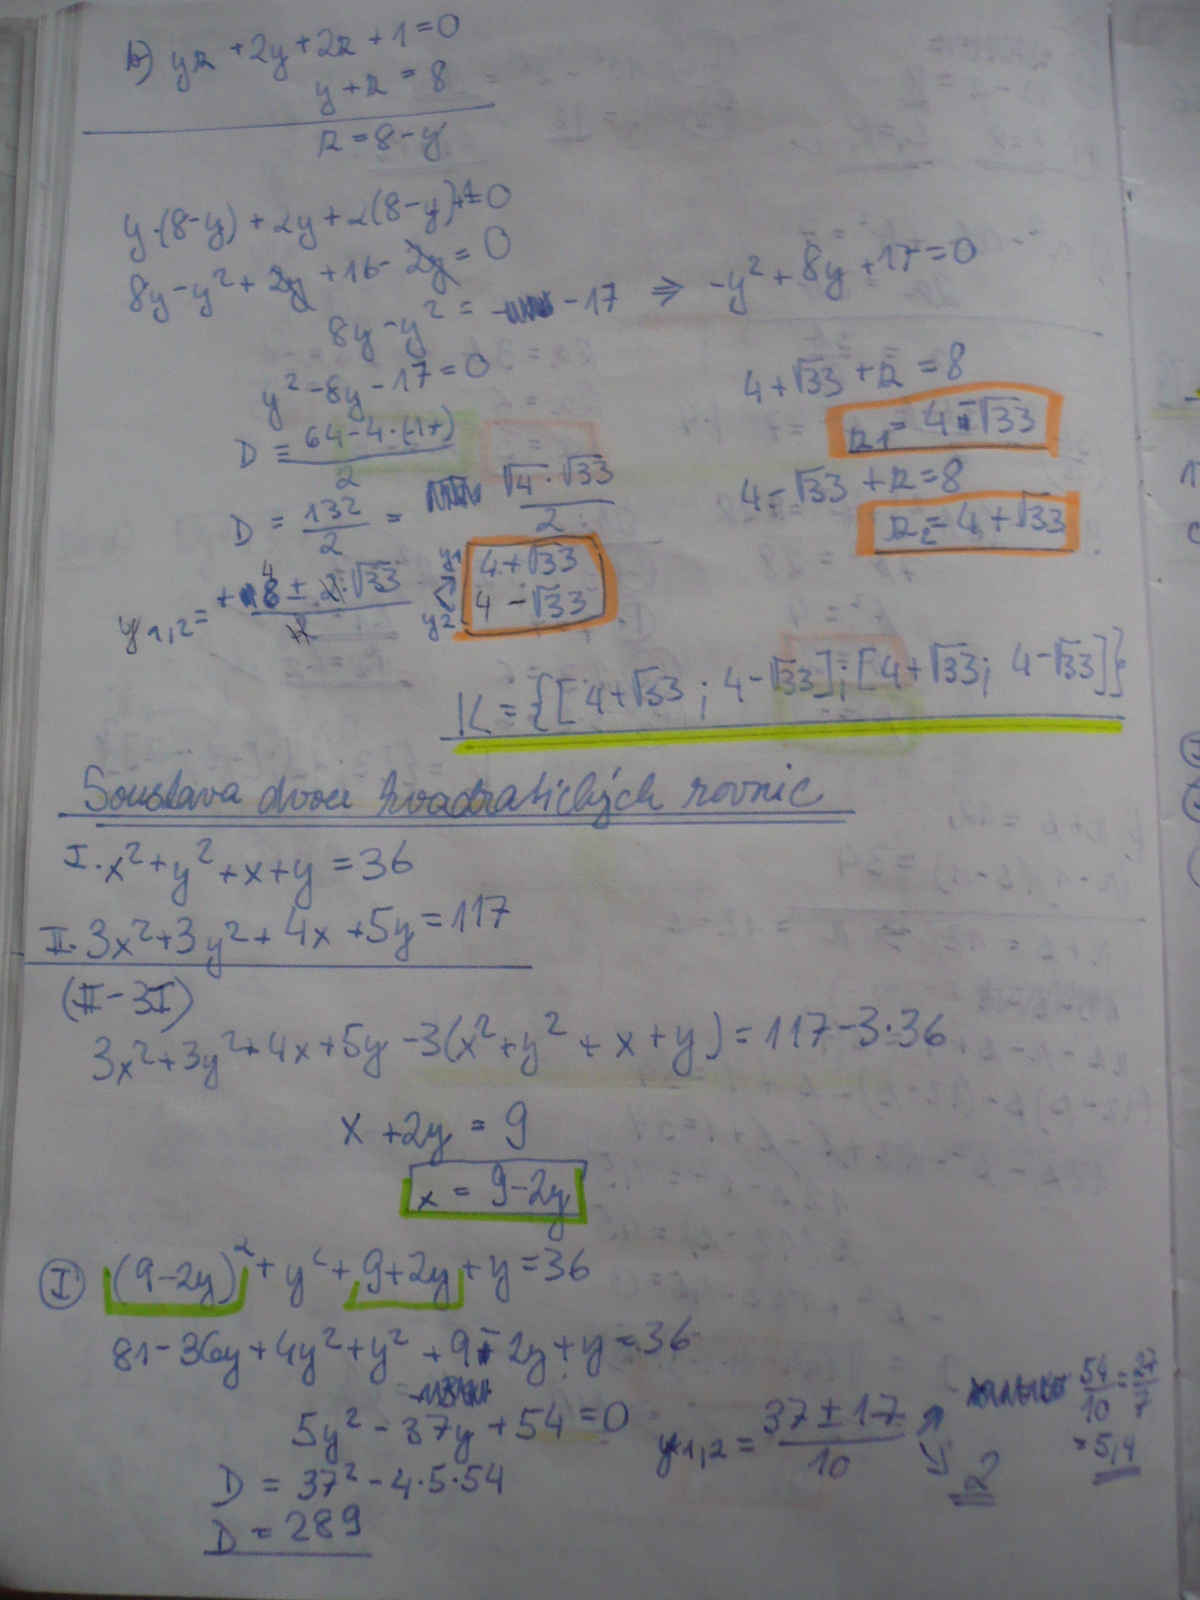 b) yz + 2y + 2z + 1 = 0
y + z = 8
z = 8 - y
y·(8-y) + 2y + 2(8-y)+1=0
8y - y² + 2y + 16 - 2y = 0
8y - y² = -17 ⇒ -y² + 8y + 17 = 0
y² - 8y - 17 = 0
D = 64 - 4·(-17) / 2
D = 132/2 = √4·√33 / 2
y1,2 = + 8 ± 2·√33 / 2
4
y1 4 + √33
y2 4 - √33
4 + √33 + z = 8
z1 = 4 - √33
4 - √33 + z = 8
z2 = 4 + √33
K = {[4+√33 ; 4-√33] ; [4+√33 ; 4-√33]}
Soustava dvou kvadratických rovnic
I. x² + y² + x + y = 36
II. 3x² + 3y² + 4x + 5y = 117
(II - 3I)
3x² + 3y² + 4x + 5y - 3(x² + y² + x + y) = 117 - 3·36
x + 2y = 9
x = 9 - 2y
I (9-2y)² + y² + 9+2y + y = 36
81 - 36y + 4y² + y² + 9 - 2y + y = 36
5y² - 37y + 54 = 0
D = 37² - 4·5·54
D = 289
y1,2 = 37 ± 17 / 10
54/10 = 27/7
= 5,4
2